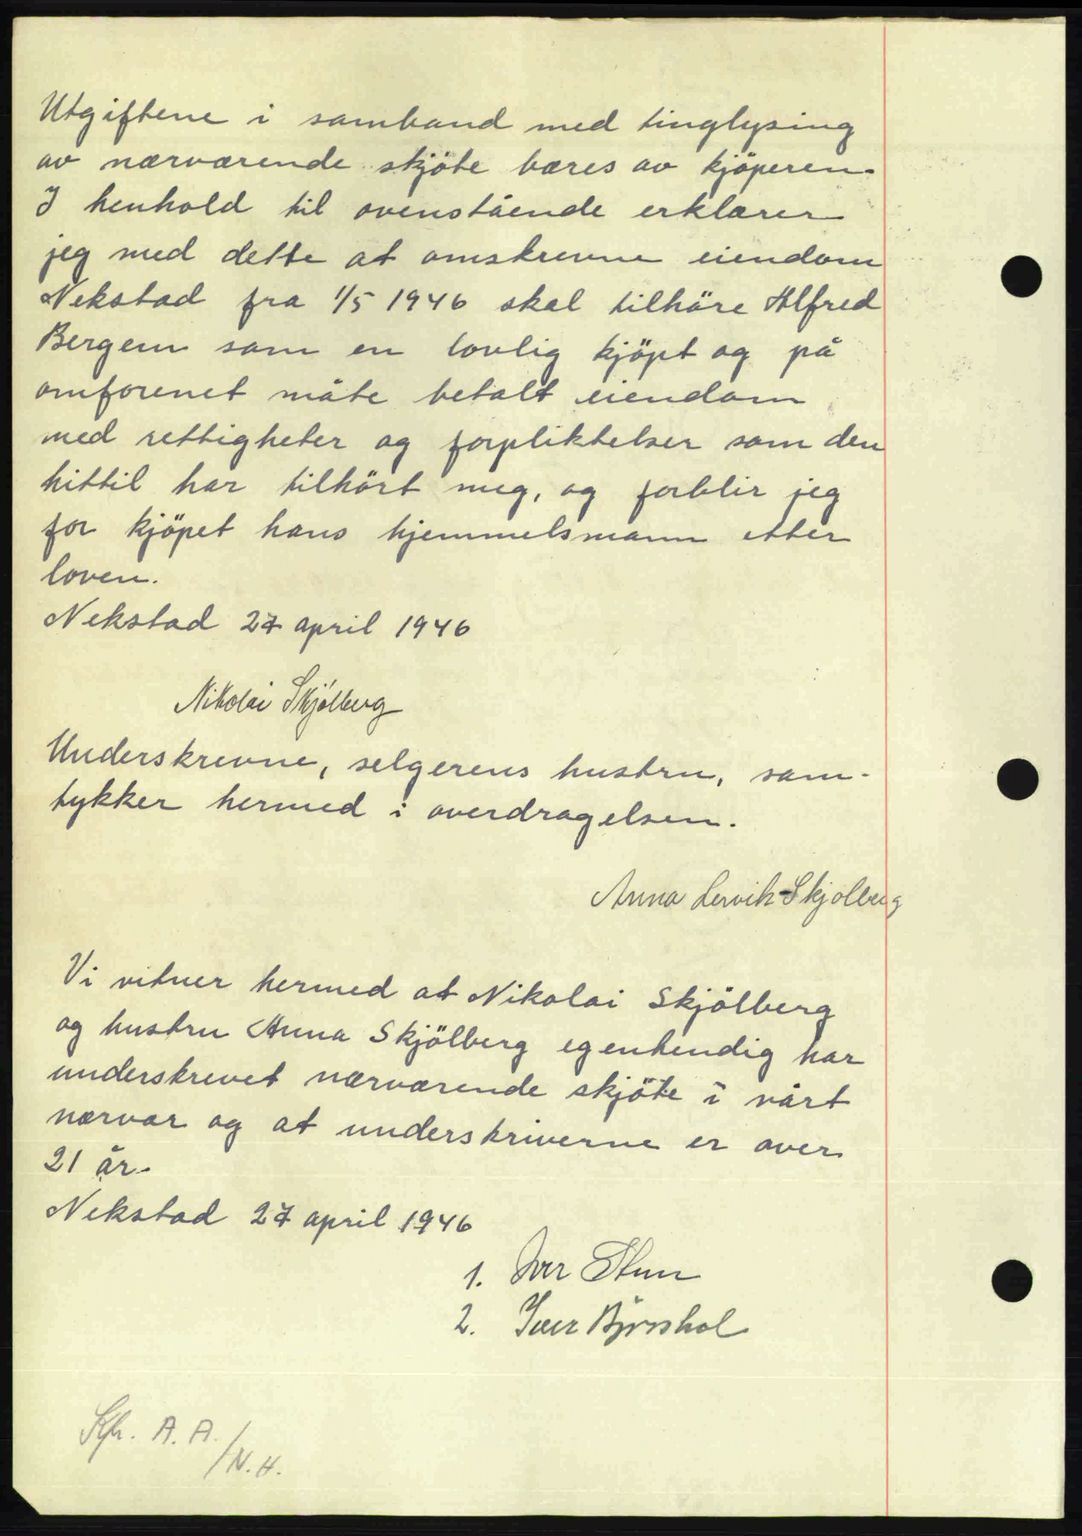 Utgiftene i samband med tinglysing
av nærværende skjöte bæres av kjöperen.
I henhold til ovenstående erklærer
jeg med dette at omskrevne eiendom
Nekstad fra 1/5 1946 skal tilhöre Alfred
Bergem som en lovlig kjöpt og på
omforenet måte betalt eiendom
med rettigheter og forpliktelser som den
hittil har tilhört meg, og forblir jeg
for kjöpet hans hjemmelsmann etter
loven.
Nekstad 27 april 1946
Nikolai Skjölberg
Underskrevne, selgerens hustru, sam-
tykker hermed i overdragelsen.
Anna Lervik-Skjolberg
Vi vitner hermed at Nikolai Skjölberg
og hustru Anna Skjölberg egenhendig har
underskrevet nærværende skjöte i vårt
nærvær og at underskriverne er over
21 år.
Nekstad 27 april 1946
1. Iver
2. Iver Bjørshol
Kfr. A.A.
/N.H.